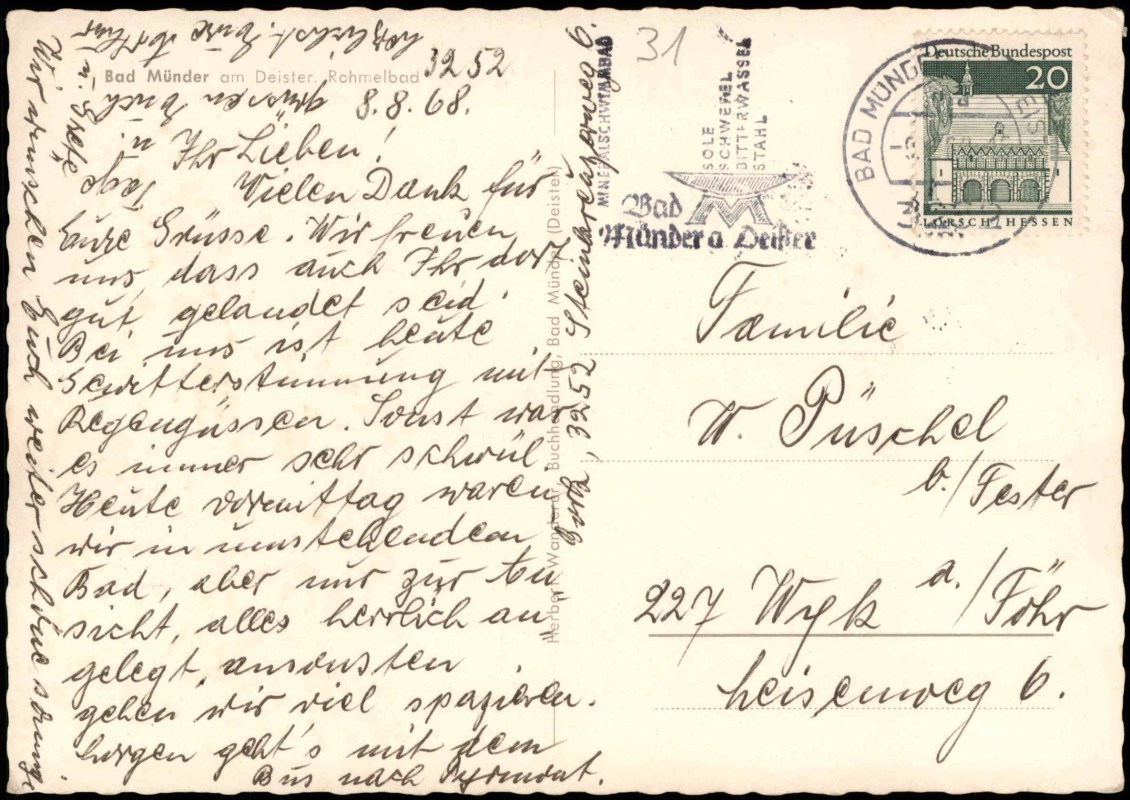 Bad Münder am Deister. Rohmelbad
3252
8.8.68.
Ihr Lieben!
Vielen Dank für
Eure Grüsse. Wir freuen
uns, dass auch Ihr dort
gut gelandet seid.
Bei uns ist heute
Gewitterstimmung mit
Regengüssen. Sonst war
es immer sehr schwül.
Heute vormittag waren
wir in umstehendem
Bad, aber nur zur An
sicht, alles herrlich an"
gelegt, ansonsten
gehen wir viel spazieren.
Morgen geht's mit dem
Bus nach Pyrmont.
Wir wünschen Euch weiter schöne sonnige
Tage u.
grüssen Euch
herzlichst Eure
u. Grete
3252 Steinkreuzerweg 6
Herbert Wanderer, Buchhandlung, Bad Münder (Deister)
31
MINERALSCHWIMMBAD
SOLE
SCHWEFEL
BITTERWASSER
STAHL
Bad
Münder a. Deister
BAD MÜNDER
Deutsche Bundespost
20
LORSCH/HESSEN
Familie
W. Püschel
b./Fester
227 Wyk a./Föhr
Heisenweg 6.